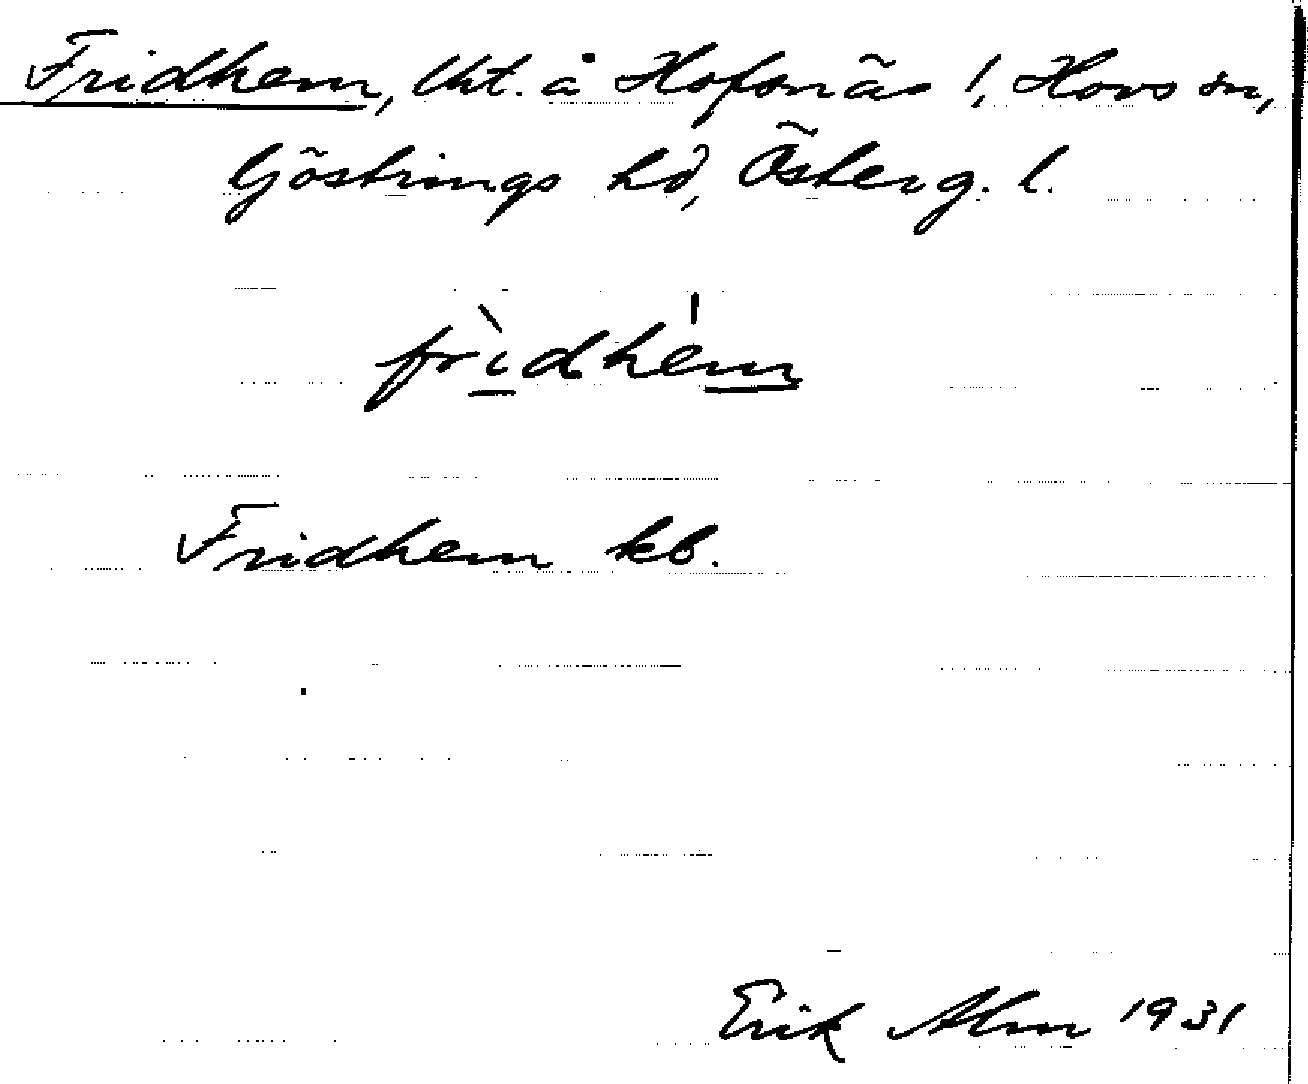 Fridhem, lht. å Hofsnäs 1, Hovs sn,
Göstrings hd, Österg. l.
frìdhém
Fridhem kb.
Erik Alm 1931